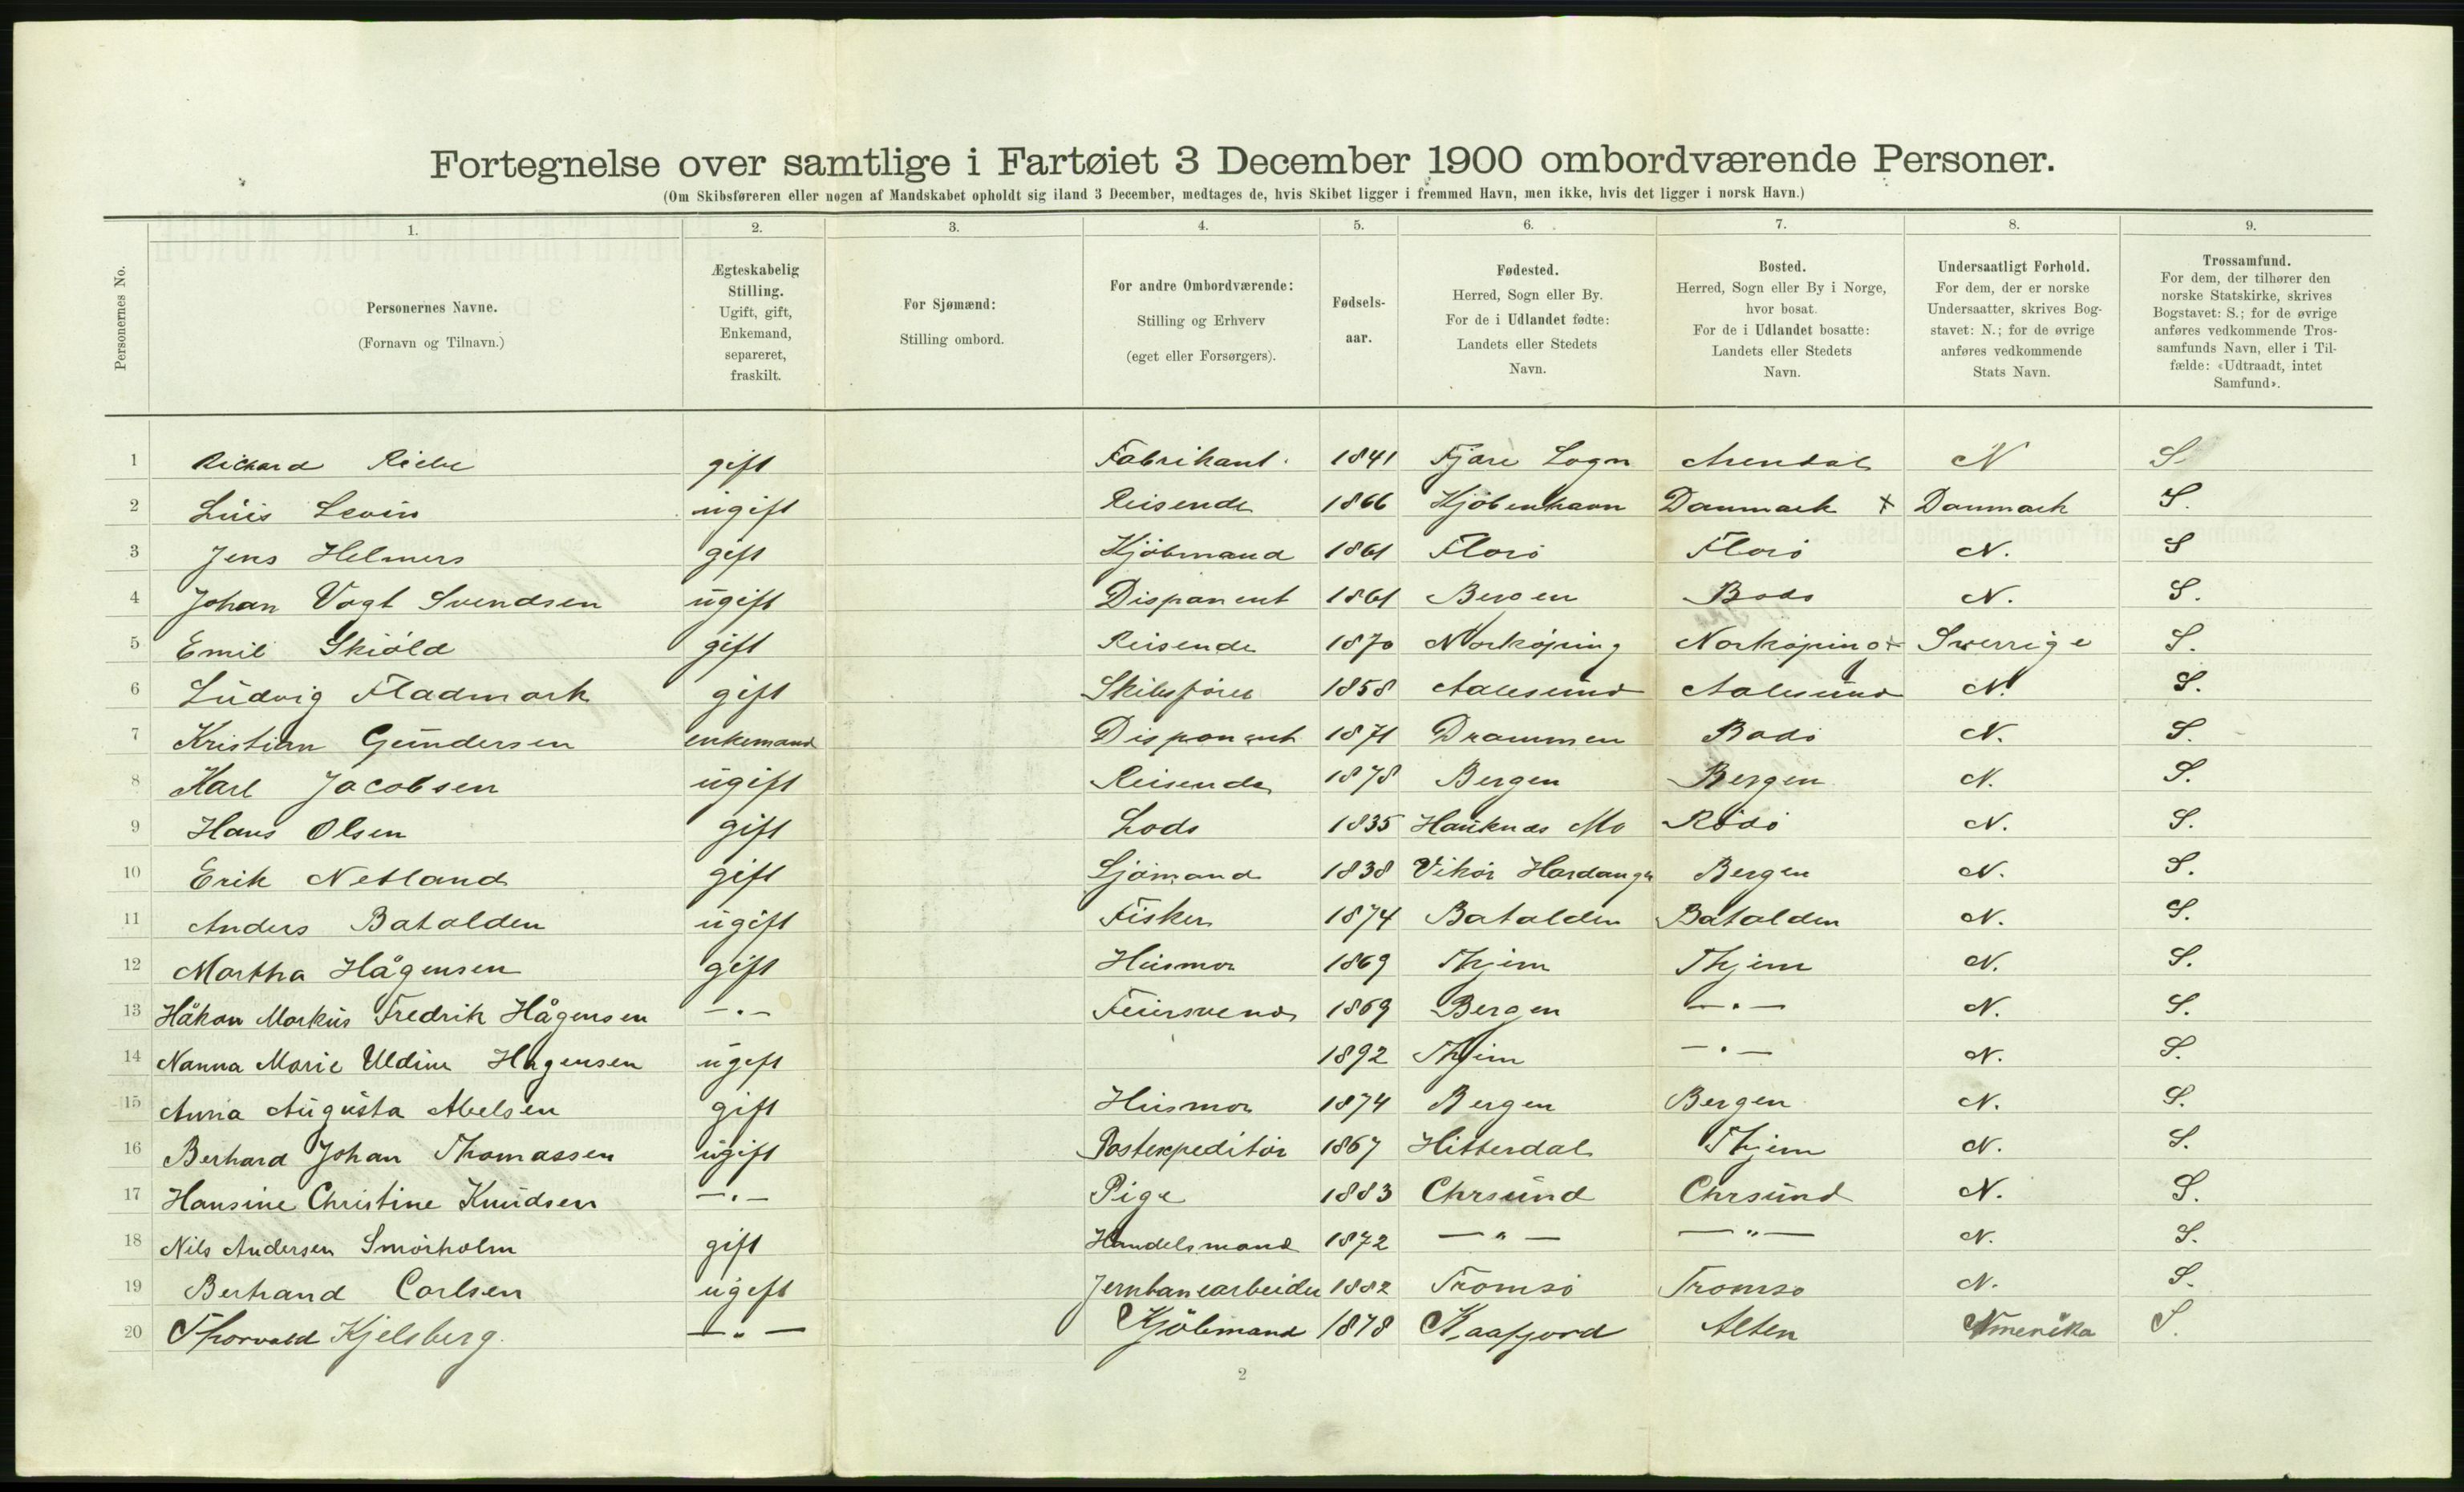 Fortegnelse over samtlige i Fartøiet 3 December 1900 ombordværende Personer.
(Om Skibsføreren eller nogen af Mandskabet opholdt sig iland 3 December, medtages de, hvis Skibet ligger i fremmed Havn, men ikke, hvis det ligger i norsk Havn.)
Personernes No.
1. 2. 3. 4. 5. 6. 7. 8. 9.
Personernes Navne.
(Fornavn og Tilnavn.)
Ægteskabelig
Stilling.
Ugift, gift,
Enkemand,
separeret,
fraskilt.
For Sjømænd:
Stilling ombord.
For andre Ombordværende:
Stilling og Erhverv
(eget eller Forsørgers).
Fødsels-
aar.
Fødested.
Herred, Sogn eller By.
For de i Udlandet fødte:
Landets eller Stedets
Navn.
Bosted.
Herred, Sogn eller By i Norge,
hvor bosat.
For de i Udlandet bosatte:
Landets eller Stedets
Navn.
Undersaatligt Forhold.
For dem, der er norske
Undersaatter, skrives Bog-
stavet: N.; for de øvrige
anføres vedkommende
Stats Navn.
Trossamfund.
For dem, der tilhører den
norske Statskirke, skrives
Bogstavet: S.; for de øvrige
anføres vedkommende Tros-
samfunds Navn, eller i Til-
fælde: «Udtraadt, intet
Samfund».
1 Richard gift Fabrikant. 1841 Fjære Sogn Arendal N S.
2 Luis Levin ugift Reisende 1866 Kjöbenhavn Danmark + Danmark S.
3 Jens Helmers gift Kjöbmand 1861 Florö Florö N. S
4 Johan Vogt Svendsen ugift Disponent 1861 Bergen Bodö N. S.
5 Emil Skiöld gift Reisende 1870 Norköping Norköping + Sverrige S.
6 Ludvig Fladmark gift Skibsförer 1858 Aalesund Aalesund N. S.
7 Kristian Gundersen enkemand Disponent 1871 Drammen Bodö N. S.
8 Karl Jacobsen ugift Reisende 1878 Bergen Bergen N. S.
9 Hans Olsen gift Lods 1835 Hauknes Mo Rödö N. S.
10 Erik Netland gift Sjömand 1838 Vikör Hardanger Bergen N. S.
11 Anders Batalden ugift Fisker 1874 Batalden Batalden N. S.
12 Martha Hågensen gift Husmor 1869 Thjem Thjem N. S.
13 Håkon Markus Fredrik Hågensen —"— Feiersvend 1869 Bergen —"— N. S.
14 Nanna Marie Uldine Hagensen ugift 1892 Thjem —"— N. S.
15 Anna Augusta Abelsen gift Husmor 1874 Bergen Bergen N. S.
16 Berhard Johan Thomassen ugift Postexpeditör 1867 Hitterdal Thjem N. S.
17 Hansine Christine Knudsen —"— Pige 1883 Chrsund Chrsund N. S.
18 Nils Andersen Smörholm gift Handelsmand 1872 —"— —"— N. S.
19 Bertrand Carlsen ugift Jernbanearbeider 1882 Tromsö Tromsö N. S.
20 Thorvald Kjelsberg. —"— Kjöbmand 1878 Kaafjord Alten Amerika S.
2